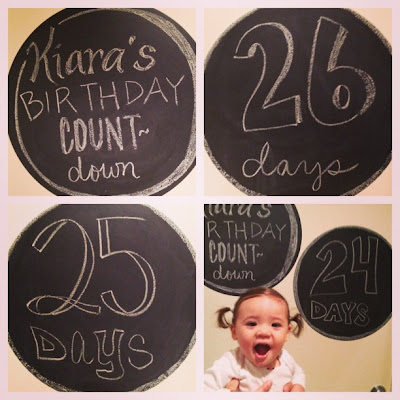 Kiara's
BIRTHDAY
COUNT~
down
26
days
25
Days
Kiara's
RTHDAY
COUNT~
down
24
DAYS